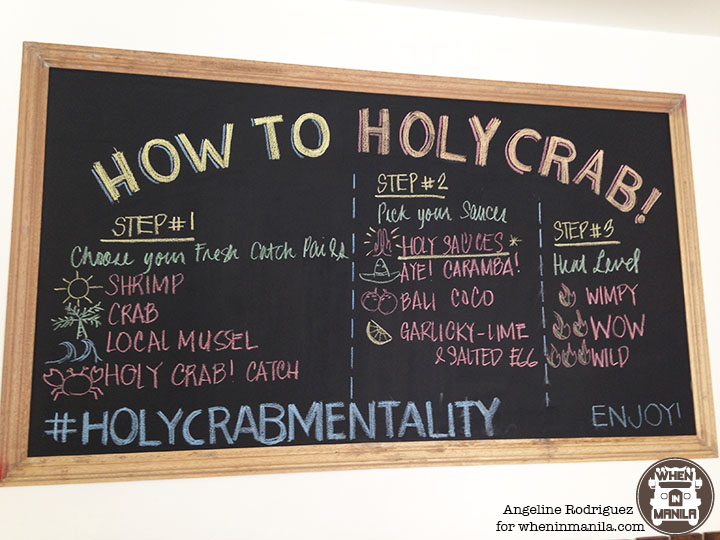 HOW TO HOLY CRAB!
STEP #1
Choose your Fresh Catch Pails
SHRIMP
CRAB
LOCAL MUSSEL
HOLY CRAB! CATCH
STEP #2
Pick your Sauces
HOLY SAUCES *
AYE! CARAMBA!
BALI COCO
GARLICKY-LIME
& SALTED EGG
STEP #3
Heat Level
WIMPY
WOW
WILD
#HOLYCRABMENTALITY
ENJOY!
Angeline Rodriguez
for wheninmanila.com
WHEN
IN
MANILA